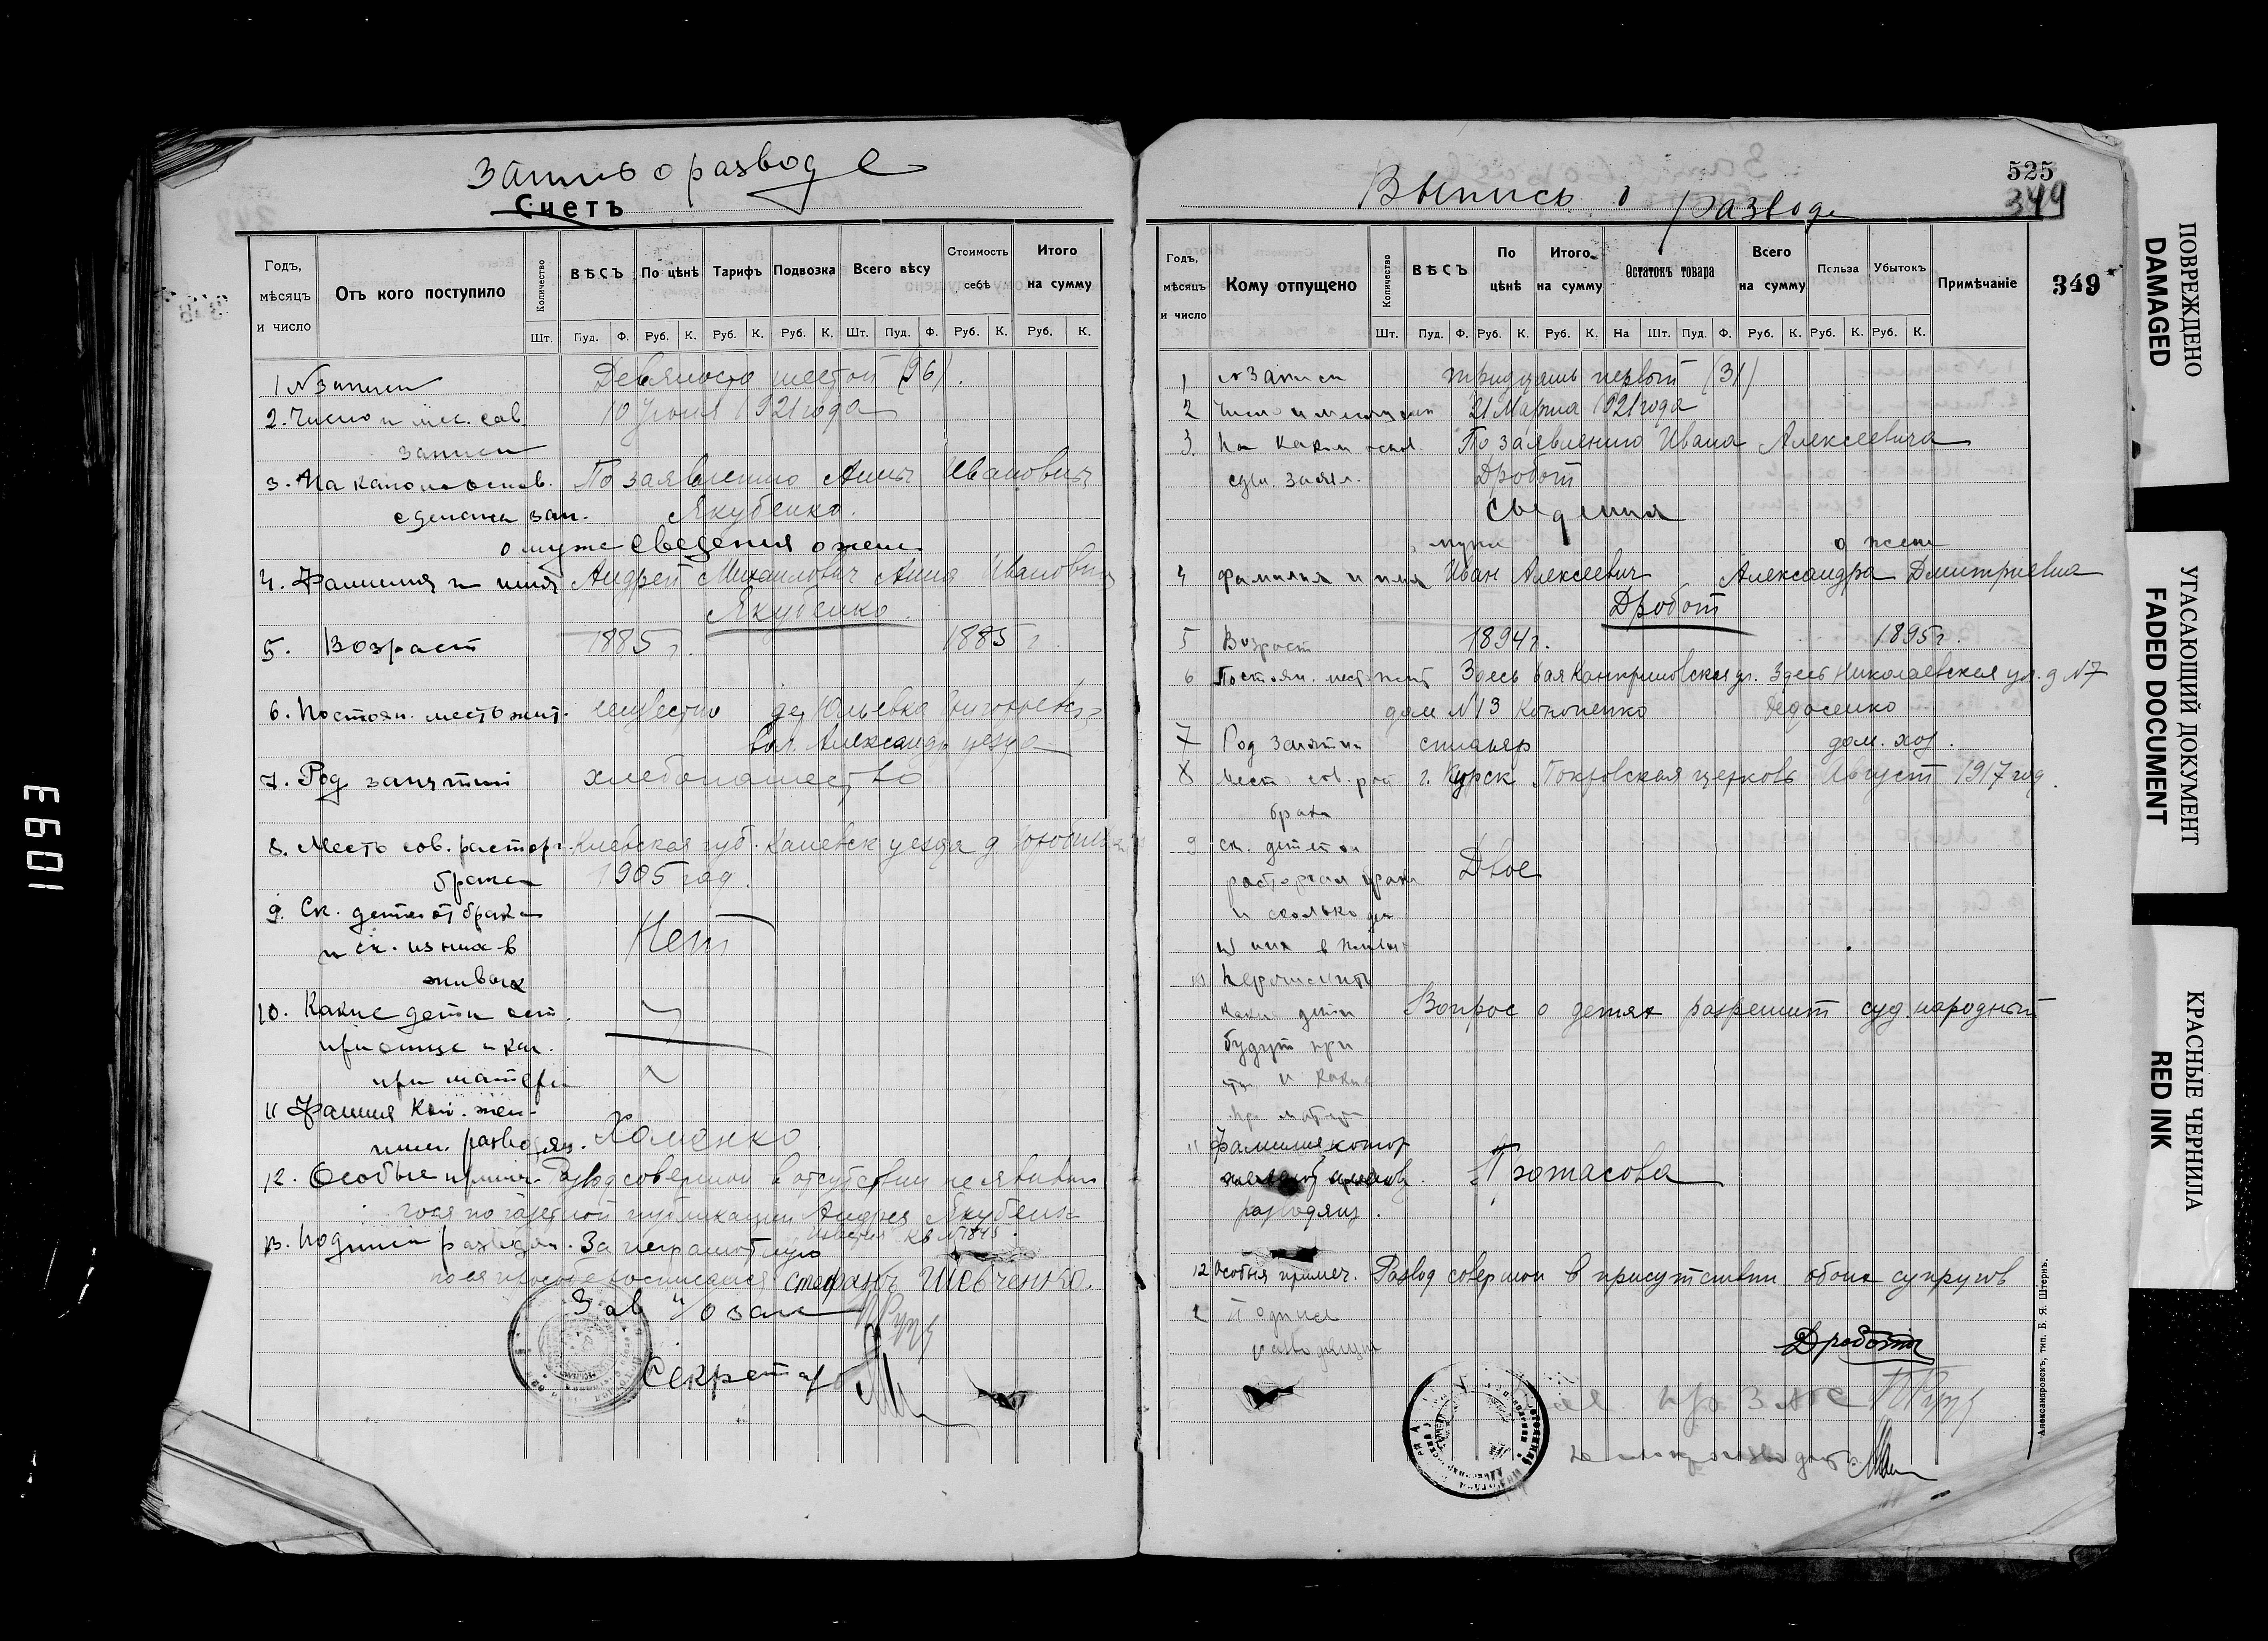 Запись о разводе
Счетъ
Годъ, мѣсяцъ и число
Отъ кого поступило
Количество
ВѢСЪ
По цѣнѣ
Тарифъ
Подвозка
Всего вѣсу
Стоимость себѣ
Итого на сумму
Шт. Пуд. Ф. Руб. К. Руб. К. Руб. К. Шт. Пуд. Ф. Руб. К. Руб. К.
1 N Записи Девяносто шестой (96).
2. Число и мес. сов. 10 Июня 1921 года
записи
3. На каком основ. По заявлению Анны Ивановны
сделана зап. Якубенко.
о муже Сведения о жене
4. Фамилия и имя Андрей Михайлович Анна Ивановна
Якубенко.
5. Возраст 1885 г. 1885 г.
6. Постоян. место жит. неизвестно дер Юльевка
вол. Александр уезда
7. Род занятий хлебопашество
8. Место сов. расторг. Киевская губ. Каневск уезда д
брака 1905 год.
9. Ск. детей от брака
и ск. из них в Нет
живых
10. Какие дети ост.
при отце и как.
при матери
11 Фамилия кот. жен-
разводящ. Хоменко
12. Особые примеч. Развод совершон в отсутствии не явивш
гося по газетной публикации Андрея Якубенко
кв N 1845.
13. Подписи разводящ. За неграмотную
по ея просьбе росписался стефанъ Шевченко.
Зав п/о зап
Секретарь
Выпись о разводе
525
349
349
Годъ, мѣсяцъ и число
Кому отпущено
Количество
ВѢСЪ
По цѣнѣ
Итого на сумму
Остатокъ товара
Всего на сумму
Польза
Убытокъ
Примѣчаніе
Шт. Пуд. Ф. Руб. К. Руб. К. На Шт. Пуд. Ф. Руб. К. Руб. К. Руб. К.
1 N Записи тридцать первой (31)
2 Число и месяц 21 Марта 1921 года
3. На каком основ. По заявлению Ивана Алексеевича
Дробот
Сведения
о муже о жене
4 Фамилия и имя Иван Алексеевич Александра Дмитриевна
Дробот
5 Возраст 1894 г. 1895 г.
6 Постоян. место жит Здесь Здесь Николаевская ул. д N 7
дом N 13 Кононенко Федосенко
7 Род занятии столяр дом. хоз.
8 Место сов. г. Курск Покровская церковь Август 1917 год.
брака
9 ск. детей от
расторгн брака Двое
и сколько
из них в живых
10 Перечислить
какие дети Вопрос о детях разрешит суд народный
будут при
отце и какие
при матери
11 Фамилия котор
Протасова
разводящ.
12 Особыя примеч. Развод совершон в присутствии обоих супругов
Подписи
разводящих
Дробот
Александровскъ, тип. Б. Я. Штернъ.
ПОВРЕЖДЕНО
DAMAGED
УГАСАЮЩИЙ ДОКУМЕНТ
FADED DOCUMENT
КРАСНЫЕ ЧЕРНИЛА
RED INK
1093